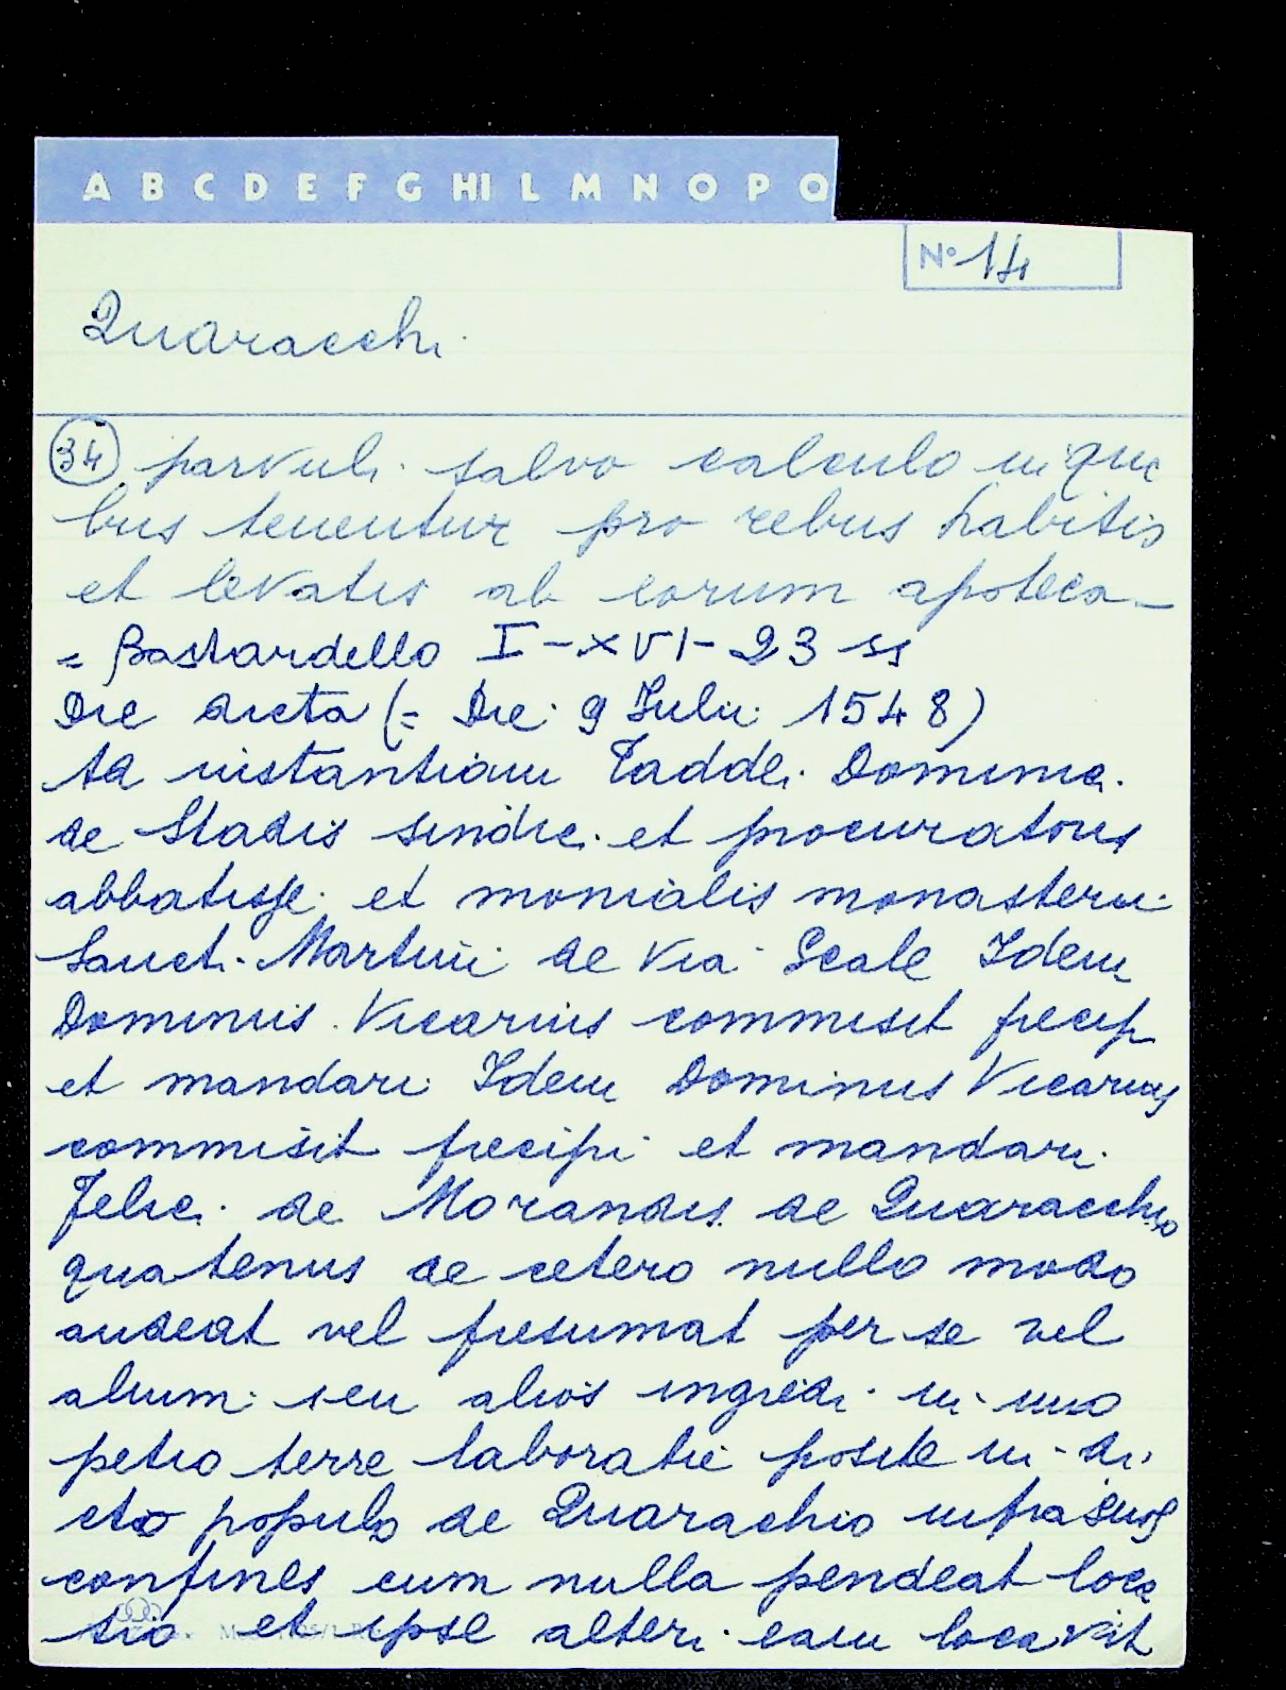 A B C D E F G HI L M N O P Q
N° 14
Quaracchi
34 parvuli salvo calculo in qui
bus tenentur pro rebus habitis
et levatis ab eorum apoteca -
= Bastardello I - XVI - 23 ss
Die dicta (= Die 9 Iulii 1548)
Ad instantiam Taddei Dominici
de Stadis sindici et procuratoris
abbatisse et monialis monasterii
Sancti Martini de Via Scale Idem
Dominus Vicarius commisit precip
et mandari Idem Dominus Vicarius
commisit precipi et mandari
Felici de Morandis de Quaracchio
quatenus de cetero nullo modo
audeat vel presumat per se vel
alium seu alios ingredi in uno
petio terre laboratie posite in di
cto populo de Quarachio infra suos
confines cum nulla pendeat loca
tio et ipse alteri eam locavit